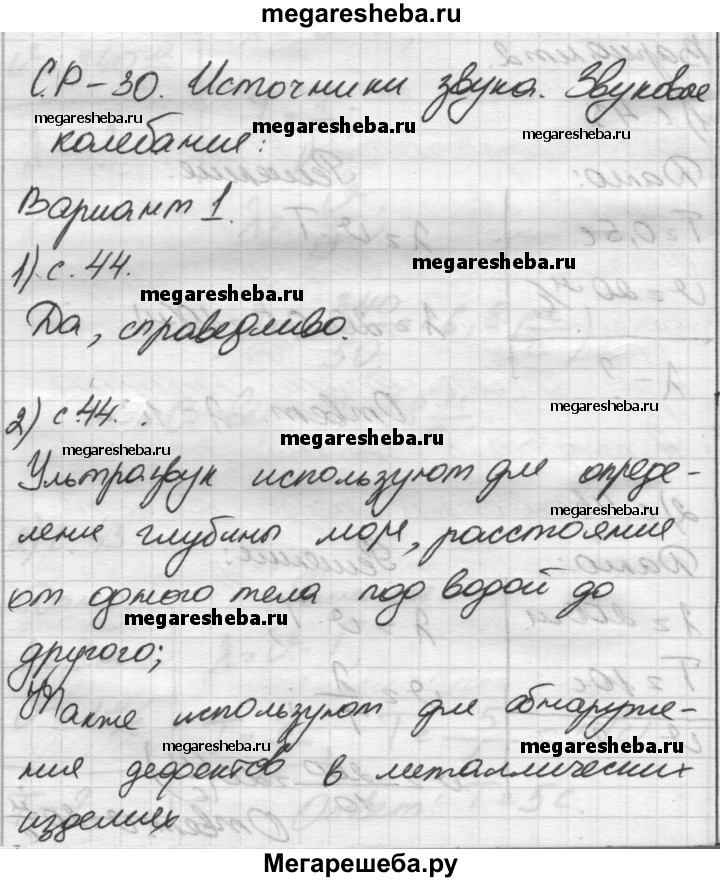 megaresheba.ru
С.Р-30. Источники звука. Звуковое
megaresheba.ru
megaresheba.ru
колебания:
Вариант 1.
1) с. 44.
megaresheba.ru
megaresheba.ru
Да, справедливо.
megaresheba.ru
2) с. 44.
megaresheba.ru
megaresheba.ru
Ультразвук используют для опреде-
ления глубины моря, расстояния
от одного тела под водой до
megaresheba.ru
другого;
Также используют для обнаруже-
megaresheba.ru
megaresheba.ru
ния дефектов в металлических
изделиях
Мегарешеба.ру